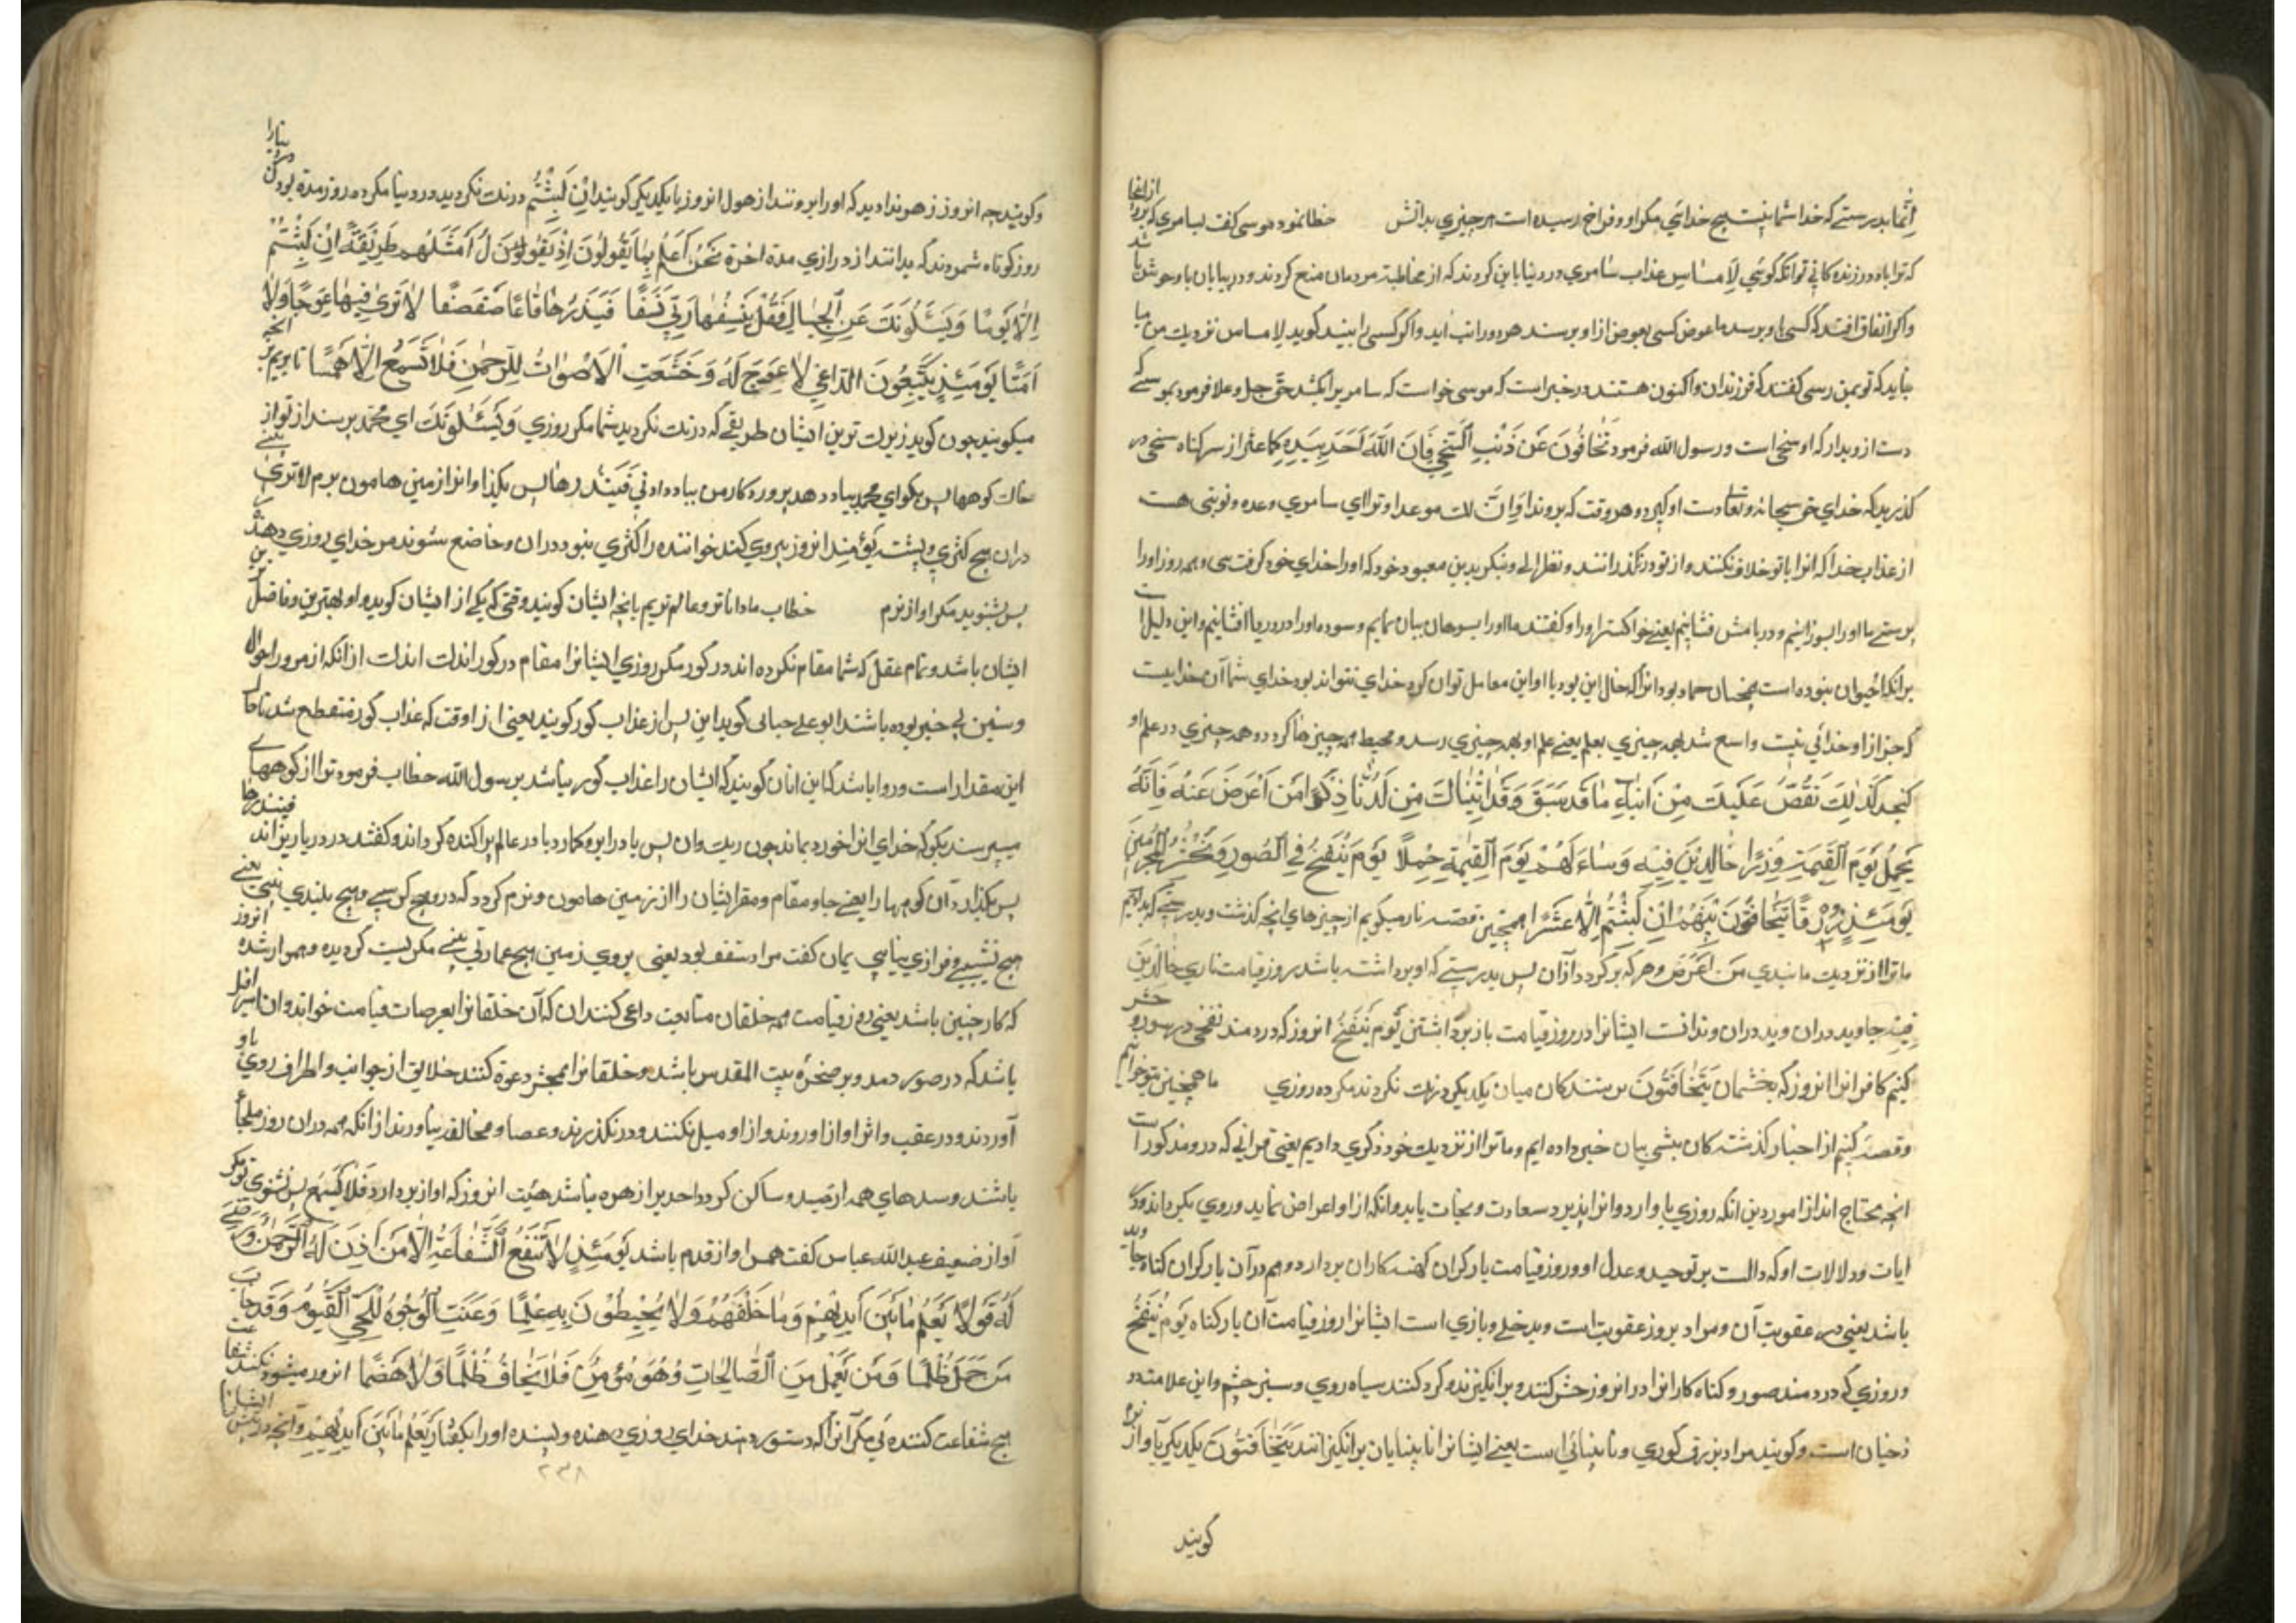 اِنَّما بدرستے که خدا شما نیست هیچ خدائی مکر او و فراخ رسیده است هر چیزي بدانش خطا نمود موسی کفت لسامري که برو از انجا
که ترا باد در زنده کانی تو انکه کوئی لَا مساس عذاب سامري در دنیا باین کردند که از مخاطبة مردمان منع کردند و در بیابان با وحوش
و اکر اتفاق افتد که کسی باو برسد یا عوض کسی بعوض از او برسند هر دو را تب اید و اکر کسی را بیند کوید لا مساس نزدیك من میا
بباید که تو بمن رسی کفتند که فرزندان او اکنون هستند در خبر است که موسی خواست که سامریرا بکشد حق جل و علا فرمود بموسے که
دست از و بدار که او سخی است و رسول الله فرمود تَجافُونَ عَن ذَنْبِ اَلسَّخِي فَاِنَّ اللهَ اَخَد بِيَدِهِ كلما عثر از سر کناه سخی در
کذرید که خداي حق سبحانه و تعالی دست او کیرد و هر وقت که بروند او وَاِنَّ لك موعدا و ترا اي سامري وعده و نوبتی هست
از عذاب خدا که انرا با تو خلاف نکنند و از تو در نکذرانند و نظر الی و بنکر بدین معبود خود که او را خداي خود کرفت سی و همه روز او را
پرستے ما او را بسوزانیم و در یامش فشانیم یعنے خاکستر او را و کفتند ما او را بسوهان بیان سایم و سوده او را در دریا افشانیم و این دلیل است
بر انکه احیوان نبوده است همچنان جماد بود انرا که حال این بود با او این معامل توان کرد خداي نتواند بود خداي شما آن خدا یست
که جز از او خدائی نیست واسع شد بهمه چیزي بعلم یعنے علم او بهمه چیزي رسد و محیط همه چیز ها کردد و همه چیزي در علم او
کنجد کَذٰلِكَ نَقُصُّ عَلَيْكَ مِنْ اَنْبَاۤءِ مٰا قَد سَبَقَ وَقَد اٰتَيْنٰاكَ مِنْ لَدُنّٰا ذِكْرًا مَنْ اَعْرَضَ عَنْهُ فَاِنَّهُ
يَحْمِلُ يَوْمَ الْقِيٰمَةِ وِزْرًا خٰالِدِيْنَ فِيْهِ وَسٰاءَ لَهُمْ يَوْمَ الْقِيٰمَةِ حِمْلًا يَوْمَ يُنْفَخُ فِي الصُّورِ وَنَحْشُرُ الْمُجْرِمِيْنَ
يَوْمَئِذٍ زُرْقًا يَتَخٰافَتُونَ بَيْنَهُمْ اِنْ لَبِثْتُمْ اِلّٰا عَشْرًا همچنین قصه نار میکویم از چیز هاي انچه کذشت و بدرستے که بداد یم
ما ترا از نزدیك ما پندي مَنْ اَعْرَضَ و هر که بر کردد از ان پس بدرستے که او بر داشته باشد بروز قیامت تا ري خٰالِدِیْنَ
فِیْهِ جاوید دران و بد دران وندانت ایشانرا در روز قیامت باز برداشتن یَوْمَ یُنْفَخُ انروز که در دمند نفخی در صور و حشر
کنیم کافرانرا انروز کربه چشمان یَتَخٰافَتُونَ بر بنند کان میان یکدیکر درنك نکردند مکر ده روزي ما همچنین بتو خوانیم
و قصه کنیم از اخبار کذشته کان پیشی بیان خبر داده ایم و ما ترا از نزدیك خود ذکري دادیم یعنی قرانے که در و مذکور است
انچه محتاج اند از امور دین انکه روزي یا و ارد و انرا پذیرد سعادت و نجات یابد و انکه از او اعراض نماید و روي بکرداند و
ایات و دلالات او که دالست بر توحید و عدل او و روز قیامت بار کران کهنه کاران بردارد و هم در آن بار کران کناه جاوید
باشد یعنی در عقوبت آن و مراد بروز عقوبت است و بد حلے و باري است ایشانرا روز قیامت آن بار کناه یَوْمَ یُنْفَخُ
و روزي که در دمند صور و کناه کارانرا در انروز حشر کنند و برانکیزند و کرد کنند سیاه روي و سبز چشم و این علامت دو
زخیان است و کویند مراد بزرق کوري و نا بینائی است یعنے ایشانرا نا بینایان برانکیزانند یَتَخٰافَتُونَ یکدیکر باواز نرم
کویند
و کویند چه انروز زهوندادید که او را بروننداز هول انروز با یکدیکر کویند اِنْ لَبِثْتُمْ درنك نکردید در دنیا مکر ده روز مدة بودن دنیا را
روز کوتاه شمردند که بدانند از درازي مدة اخرة نَحْنُ اَعْلَمُ بِمٰا يَقُولُونَ اِذْ يَقُولُ اَمْثَلُهُمْ طَرِيْقَةً اِنْ لَبِثْتُمْ
اِلّٰا يَوْمًا وَيَسْئَلُونَكَ عَنِ الْجِبٰالِ فَقُلْ يَنْسِفُهٰا رَبِّي نَسْفًا فَيَذَرُهٰا قٰاعًا صَفْصَفًا لٰا تَرىٰ فِيْهٰا عِوَجًا وَلٰا
اَمْتًا يَوْمَئِذٍ يَتَّبِعُونَ الدّٰاعِيَ لٰا عِوَجَ لَهُ وَخَشَعَتِ الْاَصْوٰاتُ لِلرَّحْمٰنِ فَلٰا تَسْمَعُ اِلّٰا هَمْسًا ما بریم بر انچه
میکویند چون کوید زیرك ترین ایشان طریقے که درنك نکردید شما مکر روزي وَیَسْئَلُونَكَ اي محمد پرسند از تو از
حال کوهها پس بکو اي محمد بباد دهد پروردکار من بباد دادنی فَیَذَرُهٰا پس بکذار و انرا زمین هامون برم لا تَرىٰ
دران هیچ کثري و پشته یَوْمَئِذٍ انروز پیروي کنند خواننده را کثري نبود دران و خاضع شوند مر خداي روزي دهنده
پس نشنوید مکر اواز نرم خطاب ما داناتر و عالم تریم بانچه ایشان کویند وقتی که یکے از ایشان کوید و او بهترین و فاضل ترین
ایشان باشد و تمام عقل که شما مقام نکرده اند در کور مکر روزي ایشانرا مقام در کور اندك اندك از انکه از مرور احوال
و سنین بے خبر بوده باشند ابو علے جبائی کوید این پس از عذاب کور کویند یعنی از اوقت که عذاب کور منقطع شد تا حال
این مقدار است و روا باشد که این انان کویند که ایشان را عذاب کور نباشد بر سول الله خطاب فرمود ترا از کوهها
میپرسند بکو که خداي انرا خورد بماند چون ریك وان پس باد را برو کارد با در عالم پراکنده کرداند و کفتند در دریا ریزاند فیذرها
پس بکذارد آن کوهها را یعنے جا و مقام و مقر ایشان را از زمین هامون و نرم کردد که در و هیچ کسے و هیچ بلندي یعنے
هیچ نشیبے و فرازي بنیابی یمان کفت مراد سقف بود یعنی بروي زمین هیچ عمارتے نبینے مکر پست کردیده و هموار شده انروز
که کار چنین باشد یعنی روز قیامت همه خلقان متابعت داعی کنند ان که آن خلقانرا بعرصات قیامت خواند و ان اسرافیل
باشد که در صور دمد و بر صخرۀ بیت المقدس باشد و خلقانرا بمحشر دعوة کنند خلایق از جوانب و اطراف روي باو
آوردند و در عقب و اثر اواز او روند و از او میل نکنند و در نکذرند و عصا و مخالفه نیاورند از انکه همه دران روز ملجأ
باشند و سدهاي همه ارمید و ساکن کردد احدیرا زهره نباشد هیئت انروز که اواز بردارد فَلٰا تَسْمَعُ پس نشنوي تو مکر
آواز ضعیف عبد الله عباس کفت همس اواز قدم باشد يَوْمَئِذٍ لٰا تَنْفَعُ الشَّفٰاعَةُ اِلّٰا مَنْ اَذِنَ لَهُ الرَّحْمٰنُ وَرَضِيَ
لَهُ قَوْلًا يَعْلَمُ مٰا بَيْنَ اَيْدِيْهِمْ وَمٰا خَلْفَهُمْ وَلٰا يُحِيْطُوْنَ بِهِ عِلْمًا وَعَنَتِ الْوُجُوهُ لِلْحَيِّ الْقَيُّومِ وَقَد خٰابَ
مَنْ حَمَلَ ظُلْمًا وَمَنْ يَعْمَلْ مِنَ الصّٰالِحٰاتِ وَهُوَ مُؤْمِنٌ فَلٰا يَخٰافُ ظُلْمًا وَلٰا هَضْمًا انروز میشود نکند شفاعت
هیچ شفاعت کننده ئي مکر آنرا که دستور دهند خداي روزي دهنده و پسنده او را بکفتار يَعْلَمُ مٰا بَيْنَ اَيْدِيْهِمْ وانچه در پیش ایشانرا
۲۳۸